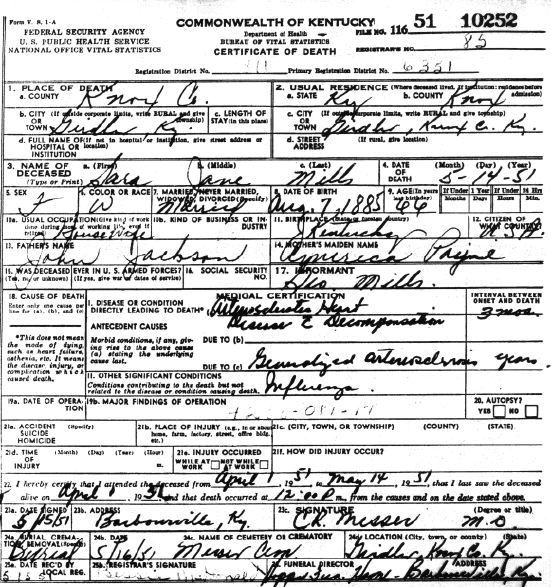 Form V. S. 1-A
FEDERAL SECURITY AGENCY
U. S. PUBLIC HEALTH SERVICE
NATIONAL OFFICE VITAL STATISTICS
COMMONWEALTH OF KENTUCKY
Department of Health
BUREAU OF VITAL STATISTICS
CERTIFICATE OF DEATH
FILE NO. 116 51 10252
REGISTRAR'S NO. 85
Registration District No. Primary Registration District No. 6351
1. PLACE OF DEATH
a. COUNTY Knox Co.
2. USUAL RESIDENCE (Where deceased lived. If institution: residence before admission)
a. STATE Ky b. COUNTY Knox
b. CITY (If outside corporate limits, write RURAL and give township) OR TOWN Girdler, Ky.
c. LENGTH OF STAY (in this place)
c. CITY (If outside corporate limits, write RURAL and give township) OR TOWN Girdler, Knox Co. Ky.
d. FULL NAME OF (If not in hospital or institution, give street address) HOSPITAL OR INSTITUTION
d. STREET ADDRESS (If rural, give location)
3. NAME OF DECEASED (Type or Print)
a. (First) Sara b. (Middle) Jane c. (Last) Mills
4. DATE OF DEATH (Month) (Day) (Year) 5-14-51
5. SEX F
6. COLOR OR RACE W
7. MARRIED, NEVER MARRIED, WIDOWED, DIVORCED (Specify) Married
8. DATE OF BIRTH Aug. 7, 1885
9. AGE (In years last birthday) 66
If Under 1 Year Months Days If Under 24 Hrs Hours Min.
10a. USUAL OCCUPATION (Give kind of work done during most of working life, even if retired) Housewife
10b. KIND OF BUSINESS OR INDUSTRY
11. BIRTHPLACE (State or foreign country) Kentucky
12. CITIZEN OF WHAT COUNTRY? U.S.A.
13. FATHER'S NAME John Jackson
14. MOTHER'S MAIDEN NAME America Payne
15. WAS DECEASED EVER IN U. S. ARMED FORCES? (Yes, no or unknown) (If yes, give war or dates of service)
16. SOCIAL SECURITY NO.
17. INFORMANT Geo Mills
18. CAUSE OF DEATH
Enter only one cause per line for (a), (b), and (c)
MEDICAL CERTIFICATION
INTERVAL BETWEEN ONSET AND DEATH
I. DISEASE OR CONDITION DIRECTLY LEADING TO DEATH* (a) Arteriosclerotic Heart Disease c Decompensation 3 mos.
*This does not mean the mode of dying, such as heart failure, asthenia, etc. It means the disease, injury, or complication which caused death.
ANTECEDENT CAUSES
Morbid conditions, if any, giving rise to the above cause (a) stating the underlying cause last.
DUE TO (b)
DUE TO (c) Generalized Arteriosclerosis years.
II. OTHER SIGNIFICANT CONDITIONS
Conditions contributing to the death but not related to the disease or condition causing death. Influenza
19a. DATE OF OPERATION
19b. MAJOR FINDINGS OF OPERATION
20. AUTOPSY? YES NO
21a. ACCIDENT SUICIDE HOMICIDE (Specify)
21b. PLACE OF INJURY (e.g., in or about home, farm, factory, street, office bldg., etc.)
21c. (CITY, TOWN, OR TOWNSHIP) (COUNTY) (STATE)
21d. TIME OF INJURY (Month) (Day) (Year) (Hour) m.
21e. INJURY OCCURRED WHILE AT WORK NOT WHILE AT WORK
21f. HOW DID INJURY OCCUR?
22. I hereby certify that I attended the deceased from April 1, 1951 to May 14, 1951, that I last saw the deceased
alive on April 1 1951 and that death occurred at 12:00 P.m., from the causes and on the date stated above.
23a. DATE SIGNED 5/15/51
23b. ADDRESS Barbourville, Ky.
23c. SIGNATURE C.K. Messer M.D. (Degree or title)
24a. BURIAL, CREMATION, REMOVAL (Specify) Burial
24b. DATE 5/16/51
24c. NAME OF CEMETERY OR CREMATORY Messer Cem
24d. LOCATION (City, town, or county) (State) Girdler, Knox Co. Ky.
25a. DATE REC'D BY LOCAL REG.
25b. REGISTRAR'S SIGNATURE
FUNERAL DIRECTOR ADDRESS Home Barbourville Ky.